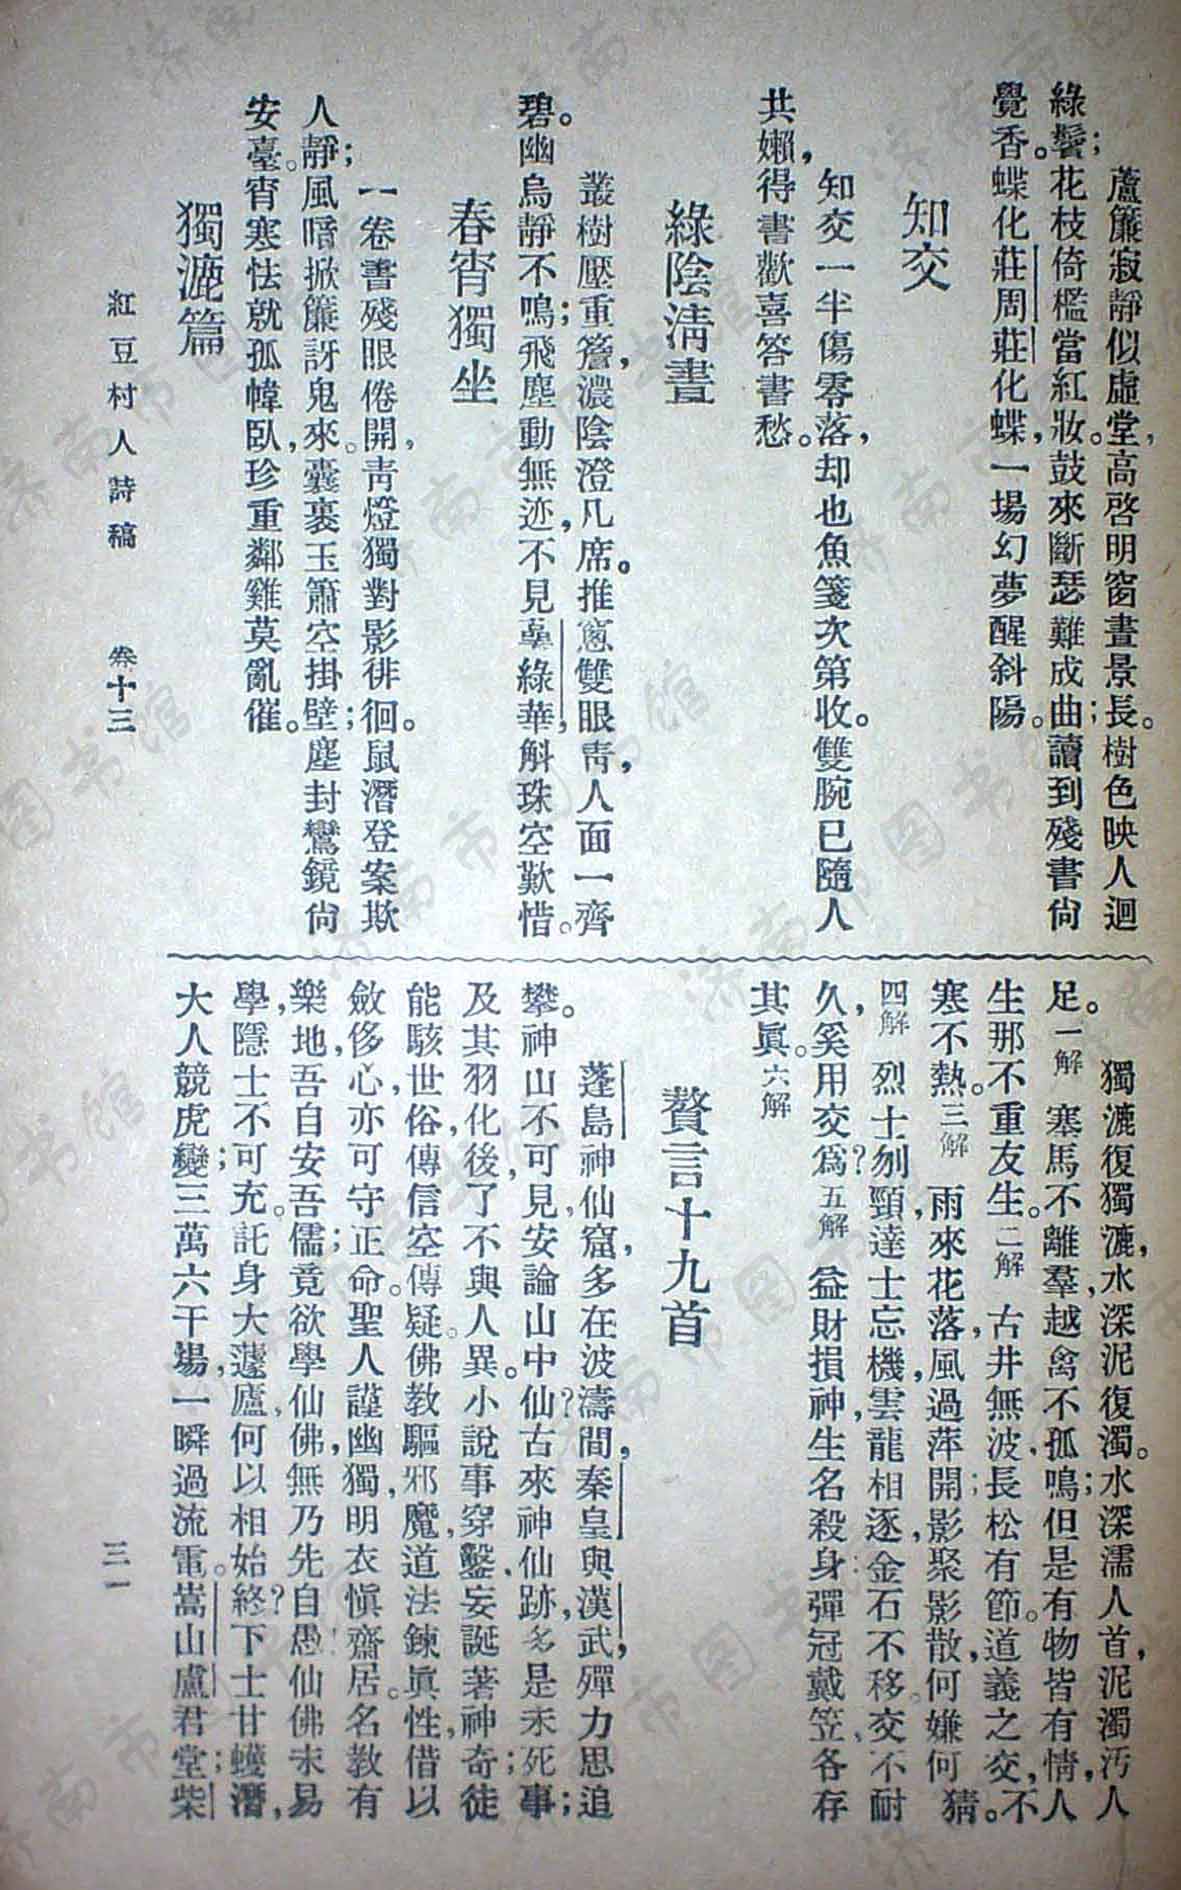 蘆簾寂靜似虛堂，高啓明窗晝景長。樹色映人迴
綠鬢；花枝倚檻當紅妝。鼓來斷瑟難成曲；讀到殘書尙
覺香。蝶化莊周莊化蝶，一場幻夢醒斜陽。
知交
知交一半傷零落，却也魚箋次第收。雙腕已隨人
共嬾，得書歡喜答書愁。
綠陰淸晝
叢樹壓重簷，濃陰澄几席。推窻雙眼靑，人面一齊
碧。幽鳥靜不鳴；飛塵動無迹，不見萼綠華，斛珠空歎惜。
春宵獨坐
一卷書殘眼倦開，靑燈獨對影徘徊。鼠潛登案欺
人靜；風暗掀簾訝鬼來。囊裹玉簫空掛壁；塵封鸞鏡尙
安臺。宵寒怯就孤幃臥，珍重鄰雞莫亂催。
獨漉篇
獨漉復獨漉，水深泥復濁。水深濡人首，泥濁汚人
足。一解 塞馬不離羣，越禽不孤鳴；但是有物皆有情，人
生那不重友生。二解 古井無波，長松有節。道義之交，不
寒不熱。三解 雨來花落，風過萍開；影聚影散，何嫌何猜。
四解 烈士刎頸，達士忘機，雲龍相逐，金石不移。交不耐
久，奚用交爲？五解 益財損神，生名殺身，彈冠戴笠，各存
其眞。六解
贅言十九首
蓬島神仙窟，多在波濤間，秦皇與漢武，殫力思追
攀。神山不可見，安論山中仙？古來神仙跡，多是未死事；
及其羽化後，了不與人異。小說事穿鑿，妄誕著神奇；徒
能駭世俗，傳信空傳疑。佛教驅邪魔，道法鍊眞性，借以
斂侈心，亦可守正命。聖人謹幽獨，明衣愼齋居。名教有
樂地，吾自安吾儒；竟欲學仙佛，無乃先自愚！仙佛未易
學，隱士不可充。託身大蘧廬，何以相始終？下士甘蠖潛，
大人競虎變；三萬六千場，一瞬過流電。嵩山盧君堂；柴
紅豆村人詩稿 卷十三
三一
濟南市图书馆